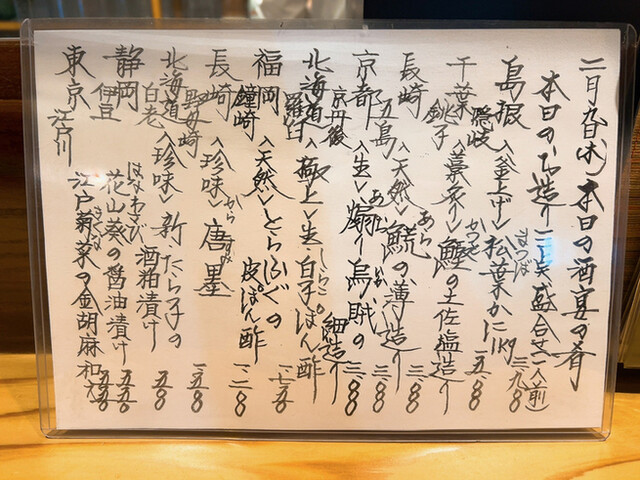 二月九日(木)本日の酒宴の肴
本日のお造り三点盛合せ(一人前) 三九〇〇
島根 隠岐 〈釜上げ〉松葉かに1kg まつば
千葉 銚子 〈藁炙り〉鰹の土佐塩造り かつを 一五〇〇
長崎 五島 〈天然〉鯇の薄造り あら 三〇〇〇
京都 京丹後 〈生〉障泥烏賊の細造り あおりいか 三〇〇〇
北海道 羅臼 〈極上〉生白子ぽん酢 しらこ 一七五〇
福岡 鐘崎 〈天然〉とらふぐの皮ぽん酢 一二〇〇
長崎 野母崎 〈珍味〉唐墨 からすみ 一五〇〇
北海道 白老 〈珍味〉新たら子の酒粕漬け 五五〇
静岡 伊豆 花山葵の醤油漬け はなわさび 五五〇
東京 江戸川 江戸菊菜の金胡麻和え 五五〇